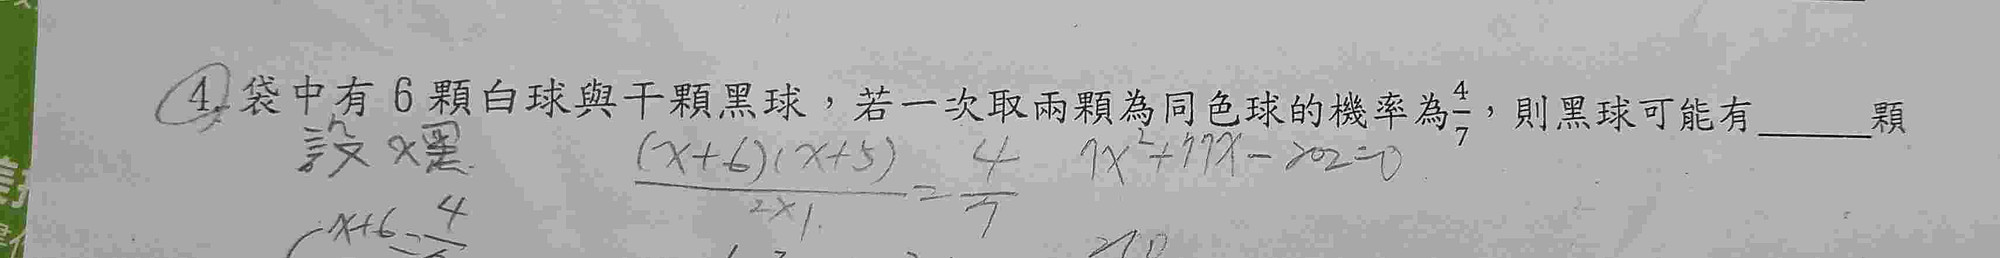 4. 袋中有 6 顆白球與干顆黑球，若一次取兩顆為同色球的機率為 4/7，則黑球可能有_____顆
設 x黑 (x+6)(x+5)/2×1 = 4/7 7x²+77x-202=0
x+6 = 4